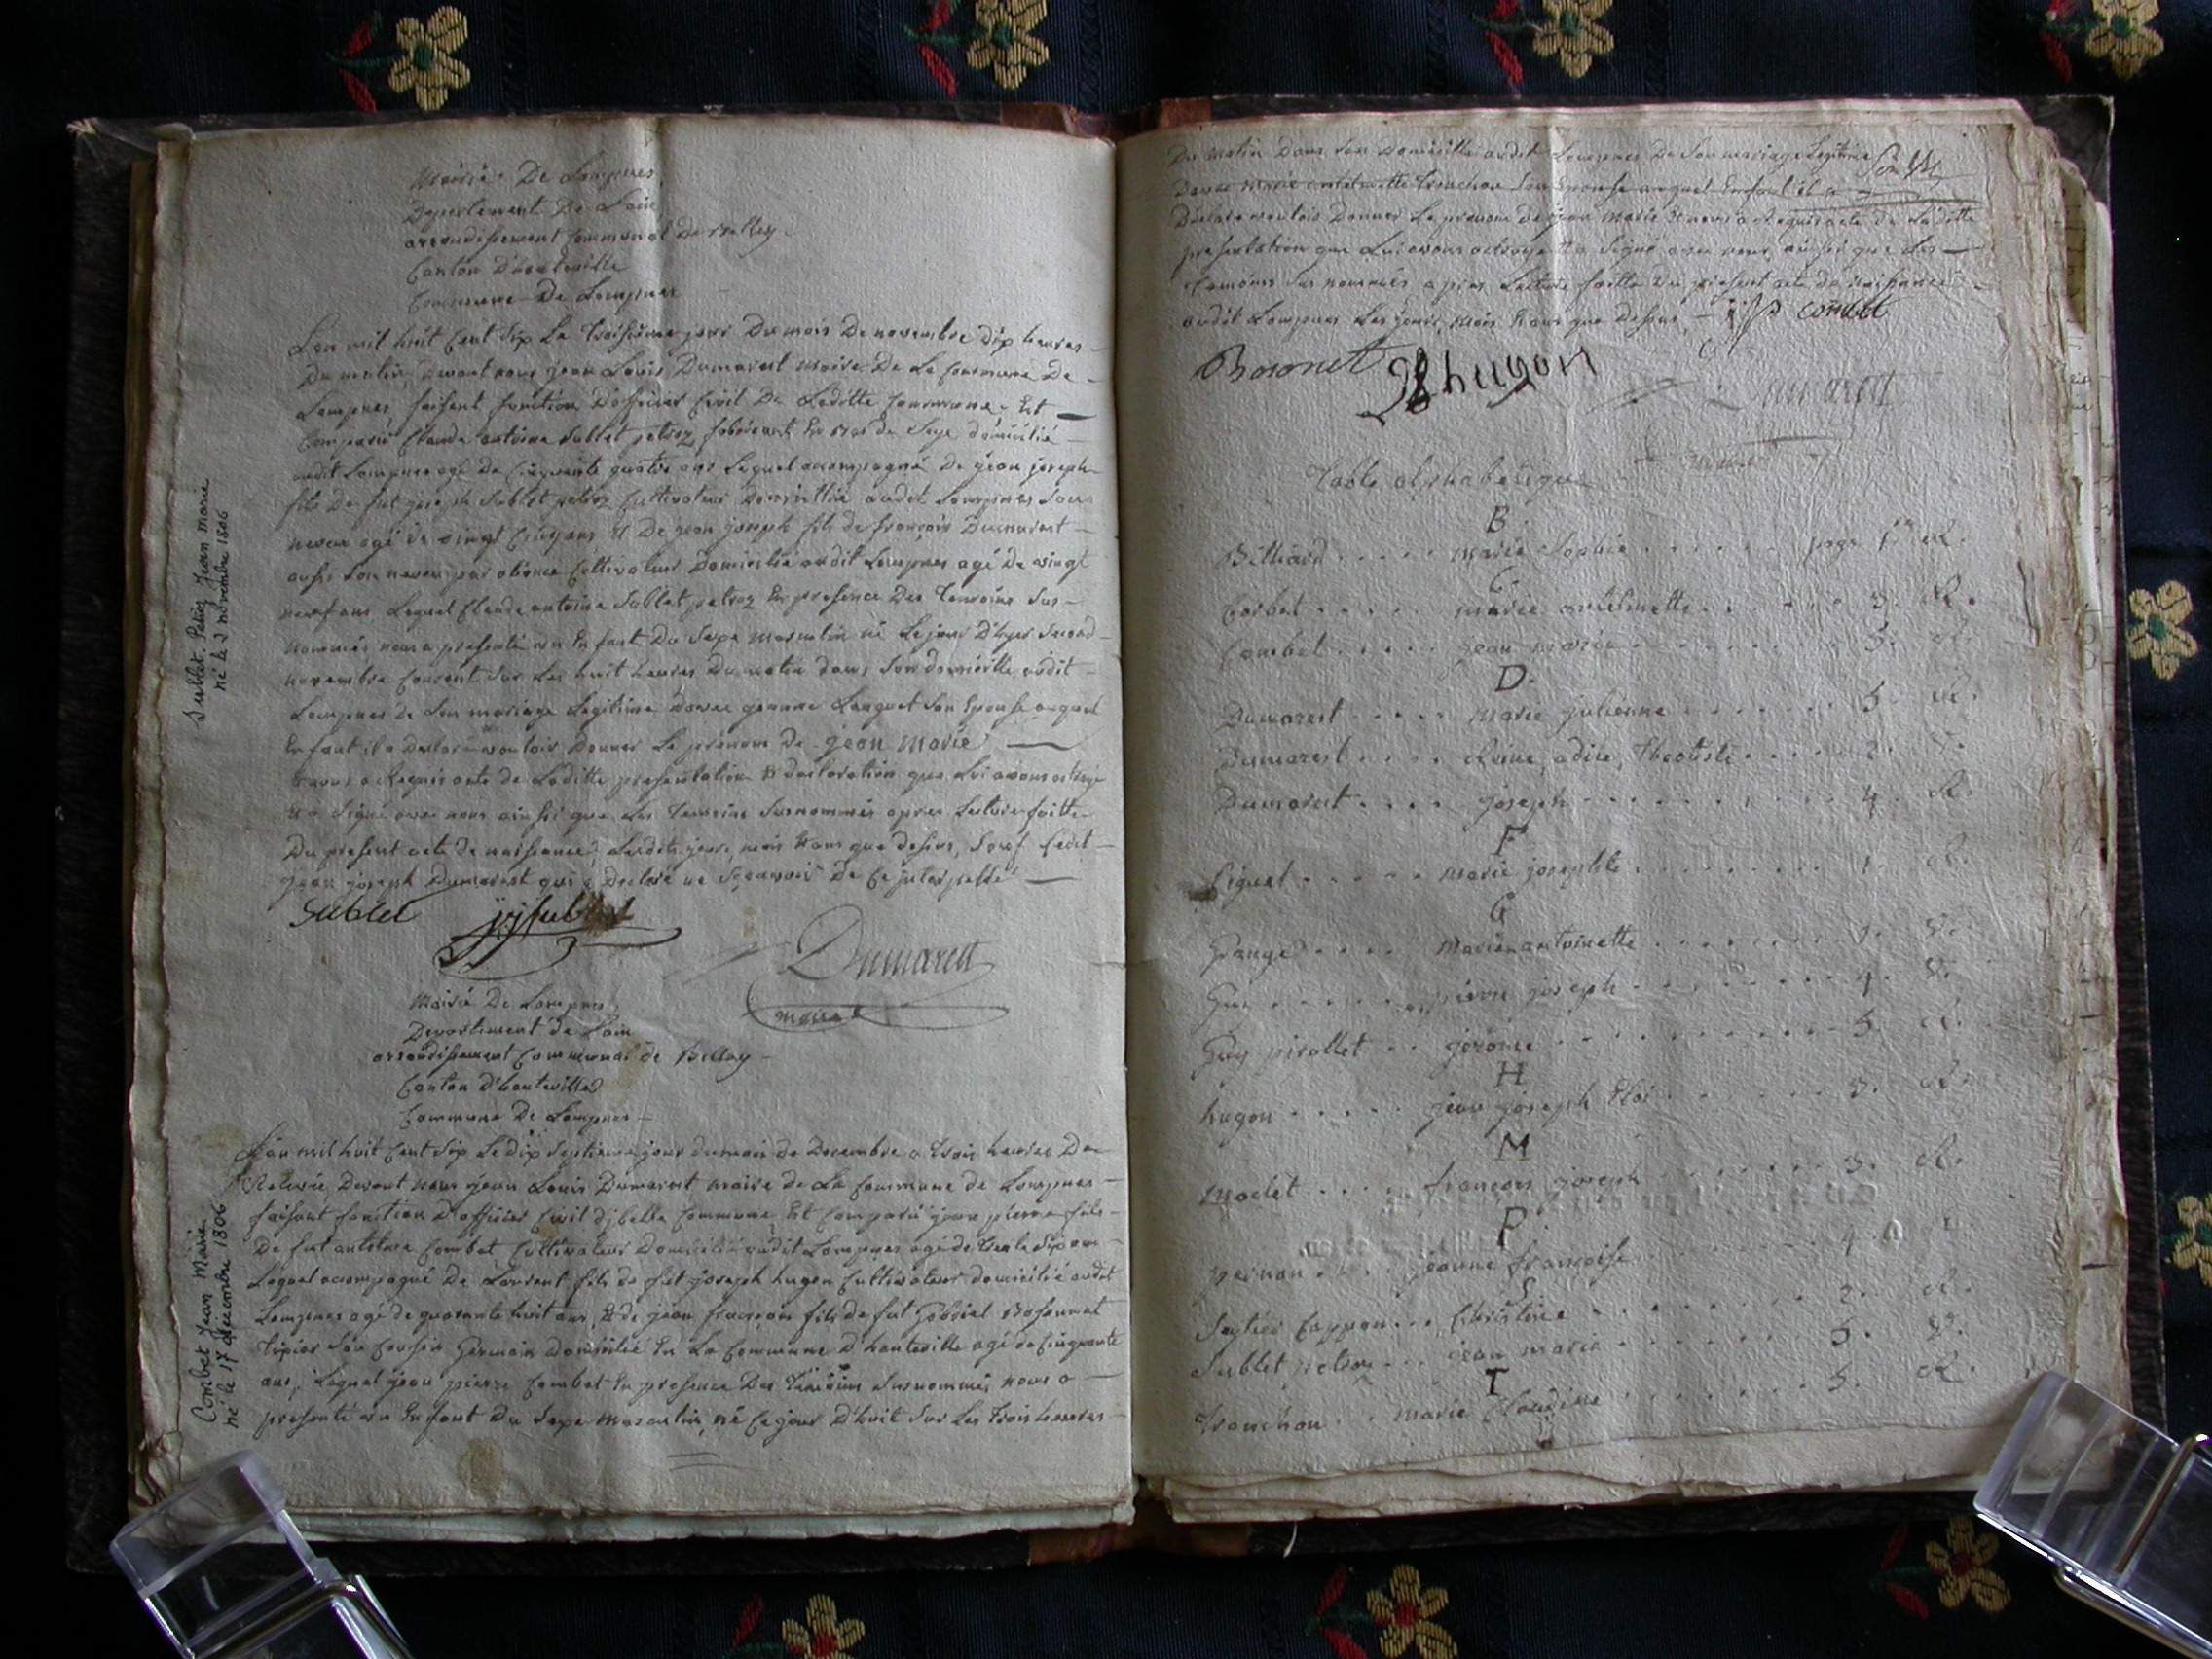 Mairie De Lompnes
Departement De Lain
arrondissement Communal De Belley
Canton D'hauteville
Commune De Lompnes
Lan mil huit Cent Six Le Troisieme jour Du mois De novembre dix heures
Du matin, devant nous jean Louis Dumarest maire De La Commune De
Lompnes, faisant fonction D'officier Civil De Laditte Commune, Est
Comparu Claude antoine Sublet petroz fabricant En de Soye domicilié
audit Lompnes agé De Cinquante quatre ans Lequel acompagné De jean joseph
fils De fut joseph Sublet petroz Cultivateur Domicillié audit Lompnes Son
neveu agé de vingt Cinq ans Et De jean joseph fils de françois Dumarest
aussi Son neveu par aliance Cultivateur Domicilié audit Lompnes agé De vingt
neuf ans Lequel Claude antoine Sublet petroz En presence Des Temoins Sus
nommés nous a presenté un Enfant Du Sexe masculin né Le jour D'hyer Second
novembre Courant Sur Les huit heures Du matin dans Son domicille audit
Lompnes de Son mariage Legitime davec jeanne Lenguet Son Epouse auquel
Enfant il a declaré vouloir Donner Le prénom de jean marie
nous a Requis acte de Laditte presentation & declaration que Lui avons octroyé
Et a Signé avec nous ainsi que Les Temoins Susnommés apres Lecture faitte
Du present acte de naissance, Lesdits jour, mois & ans que dessus, Sauf Ledit
jean joseph Dumarest qui a Declaré ne Sçavoir De Ce juterpellé
Sublet jj Sublet
Dumarest
maire
Sublet Petroz Jean marie
né le 2 novembre 1806
Mairie De Lompnes
Departement de Lain
arrondissement Communal de Belley
Canton d'hauteville
Commune de Lompnes
Lan mil huit Cent Six Le dix Septieme jour du mois de Decembre a trois heures De
Relevée, Devant nous jean Louis Dumarest maire de La Commune de Lompnes
faisant fonction D'officier Civil Commune, Est Comparu jean pierre fils
De fut antelme Combet Cultivateur Domicilié audit Lompnes agé de trente Six ans
Lequel acompagné De Laurent fils de fut joseph hugon Cultivateur domicilié audit
Lompnes agé de quarante huit ans, & de jean françois fils de fut Gabriel Bosonnet
Tixier Son Cousin Germain domicilié En La Commune d'hauteville agé de Cinquante
ans, Lequel jean pierre Combet En presence Des Temoins Susnommés nous a
presenté un Enfant Du Sexe masculin, né Cejour D'huit Sur Les Trois heures
Combet Jean Marie
né le 17 décembre 1806
Du matin Dans Son Domicille audit Lompnes De Son mariage Legitime
Davec Marie antelmette Tronchon Son Epouse auquel Enfant il a
Déclaré vouloir Donner Le prenom De jean Marie Et nous a Requis acte de Laditte
presentation que Lui avons octroyé Et a Signé avec nous ainsi que Les
temoins Sus nommés apres Lecture faitte du present acte de naissance
audit Lompnes Les jour, mois & ans que dessus jp combet
Bosonet Lhugon
Dumarest
maire
Table alphabetique
B
Billiard marie Sophie page 1re R.
C
Corbet marie antelmette 3. R.
Combet jean marie 5. R.
D.
Dumarest Marie julienne 5 R.
Dumarest Reine, adire, Theotiste 2. V.
Dumarest joseph 4. R.
F
Figuet marie josephte 1. R.
G
Granged Marie antoinette 1. V.
Guy pierre joseph 4. V.
Guy pirollet gerome 5. R.
H
hugon jean joseph Eloi 3. R.
M
Moclet françois joseph 3. R.
P.
pernou jeanne françoise 4.
S.
Seytier Cappon Christine 2. R.
Sublet petroz jean marie 5. V.
T
Tronchon marie Claudine 5. R.